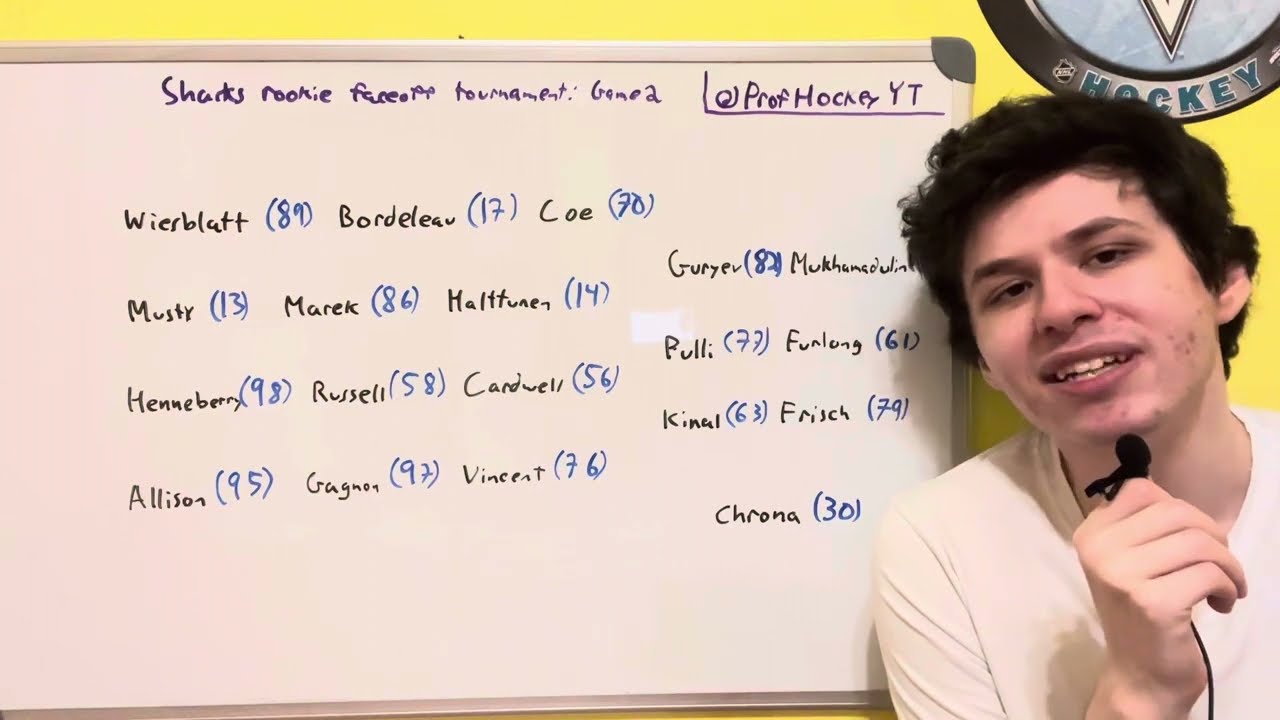 Sharks rookie faceoff tournament: Game 2
@ProfHockeyYT
HOCKEY
Wierblatt (89) Bordeleau (17) Coe (70)
Musty (13) Marek (86) Halttunen (14)
Henneberry (98) Russell (58) Cardwell (56)
Allison (95) Gagnon (97) Vincent (76)
Guryev (82) Mukhamadulin
Pulli (77) Furlong (61)
Kinal (63) Frisch (79)
Chrona (30)